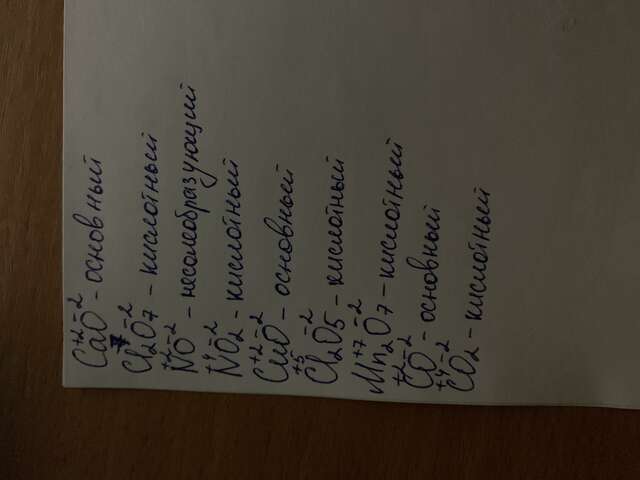 +2 -2
CaO - основный
+7 -2
Cl2O7 - кислотный
+2 -2
NO - несолеобразующий
+4 -2
NO2 - кислотный
+2 -2
CuO - основный
+5 -2
Cl2O5 - кислотный
+7 -2
Mn2O7 - кислотный
+2 -2
CO - основный
+4 -2
CO2 - кислотный